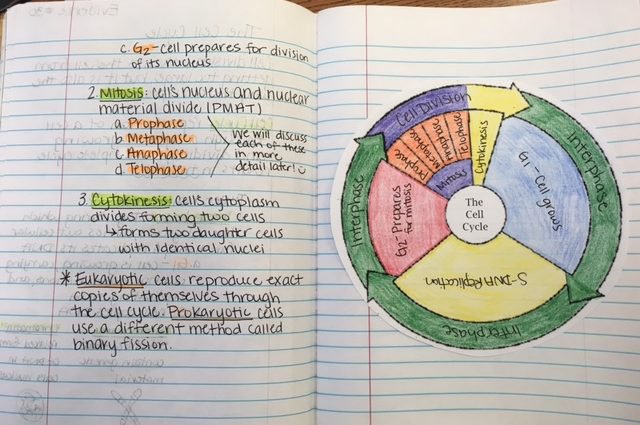 c. G2-cell prepares for division
of its nucleus
2. Mitosis: cell's nucleus and nuclear
material divide (PMAT)
a. Prophase
b. Metaphase
c. Anaphase
d. Telophase
We will discuss
each of these
in more
detail later!
3. Cytokinesis: cells cytoplasm
divides forming two cells
↳ forms two daughter cells
with identical nuclei
* Eukaryotic cells reproduce exact
copies of themselves through
the cell cycle. Prokaryotic cells
use a different method called
binary fission.
Cell Division
Prophase
Metaphase
Anaphase
Telophase
Mitosis
Cytokinesis
Interphase
G1-Cell grows
The
Cell
Cycle
S-DNA Replication
Interphase
G2-Prepares
for mitosis
Interphase